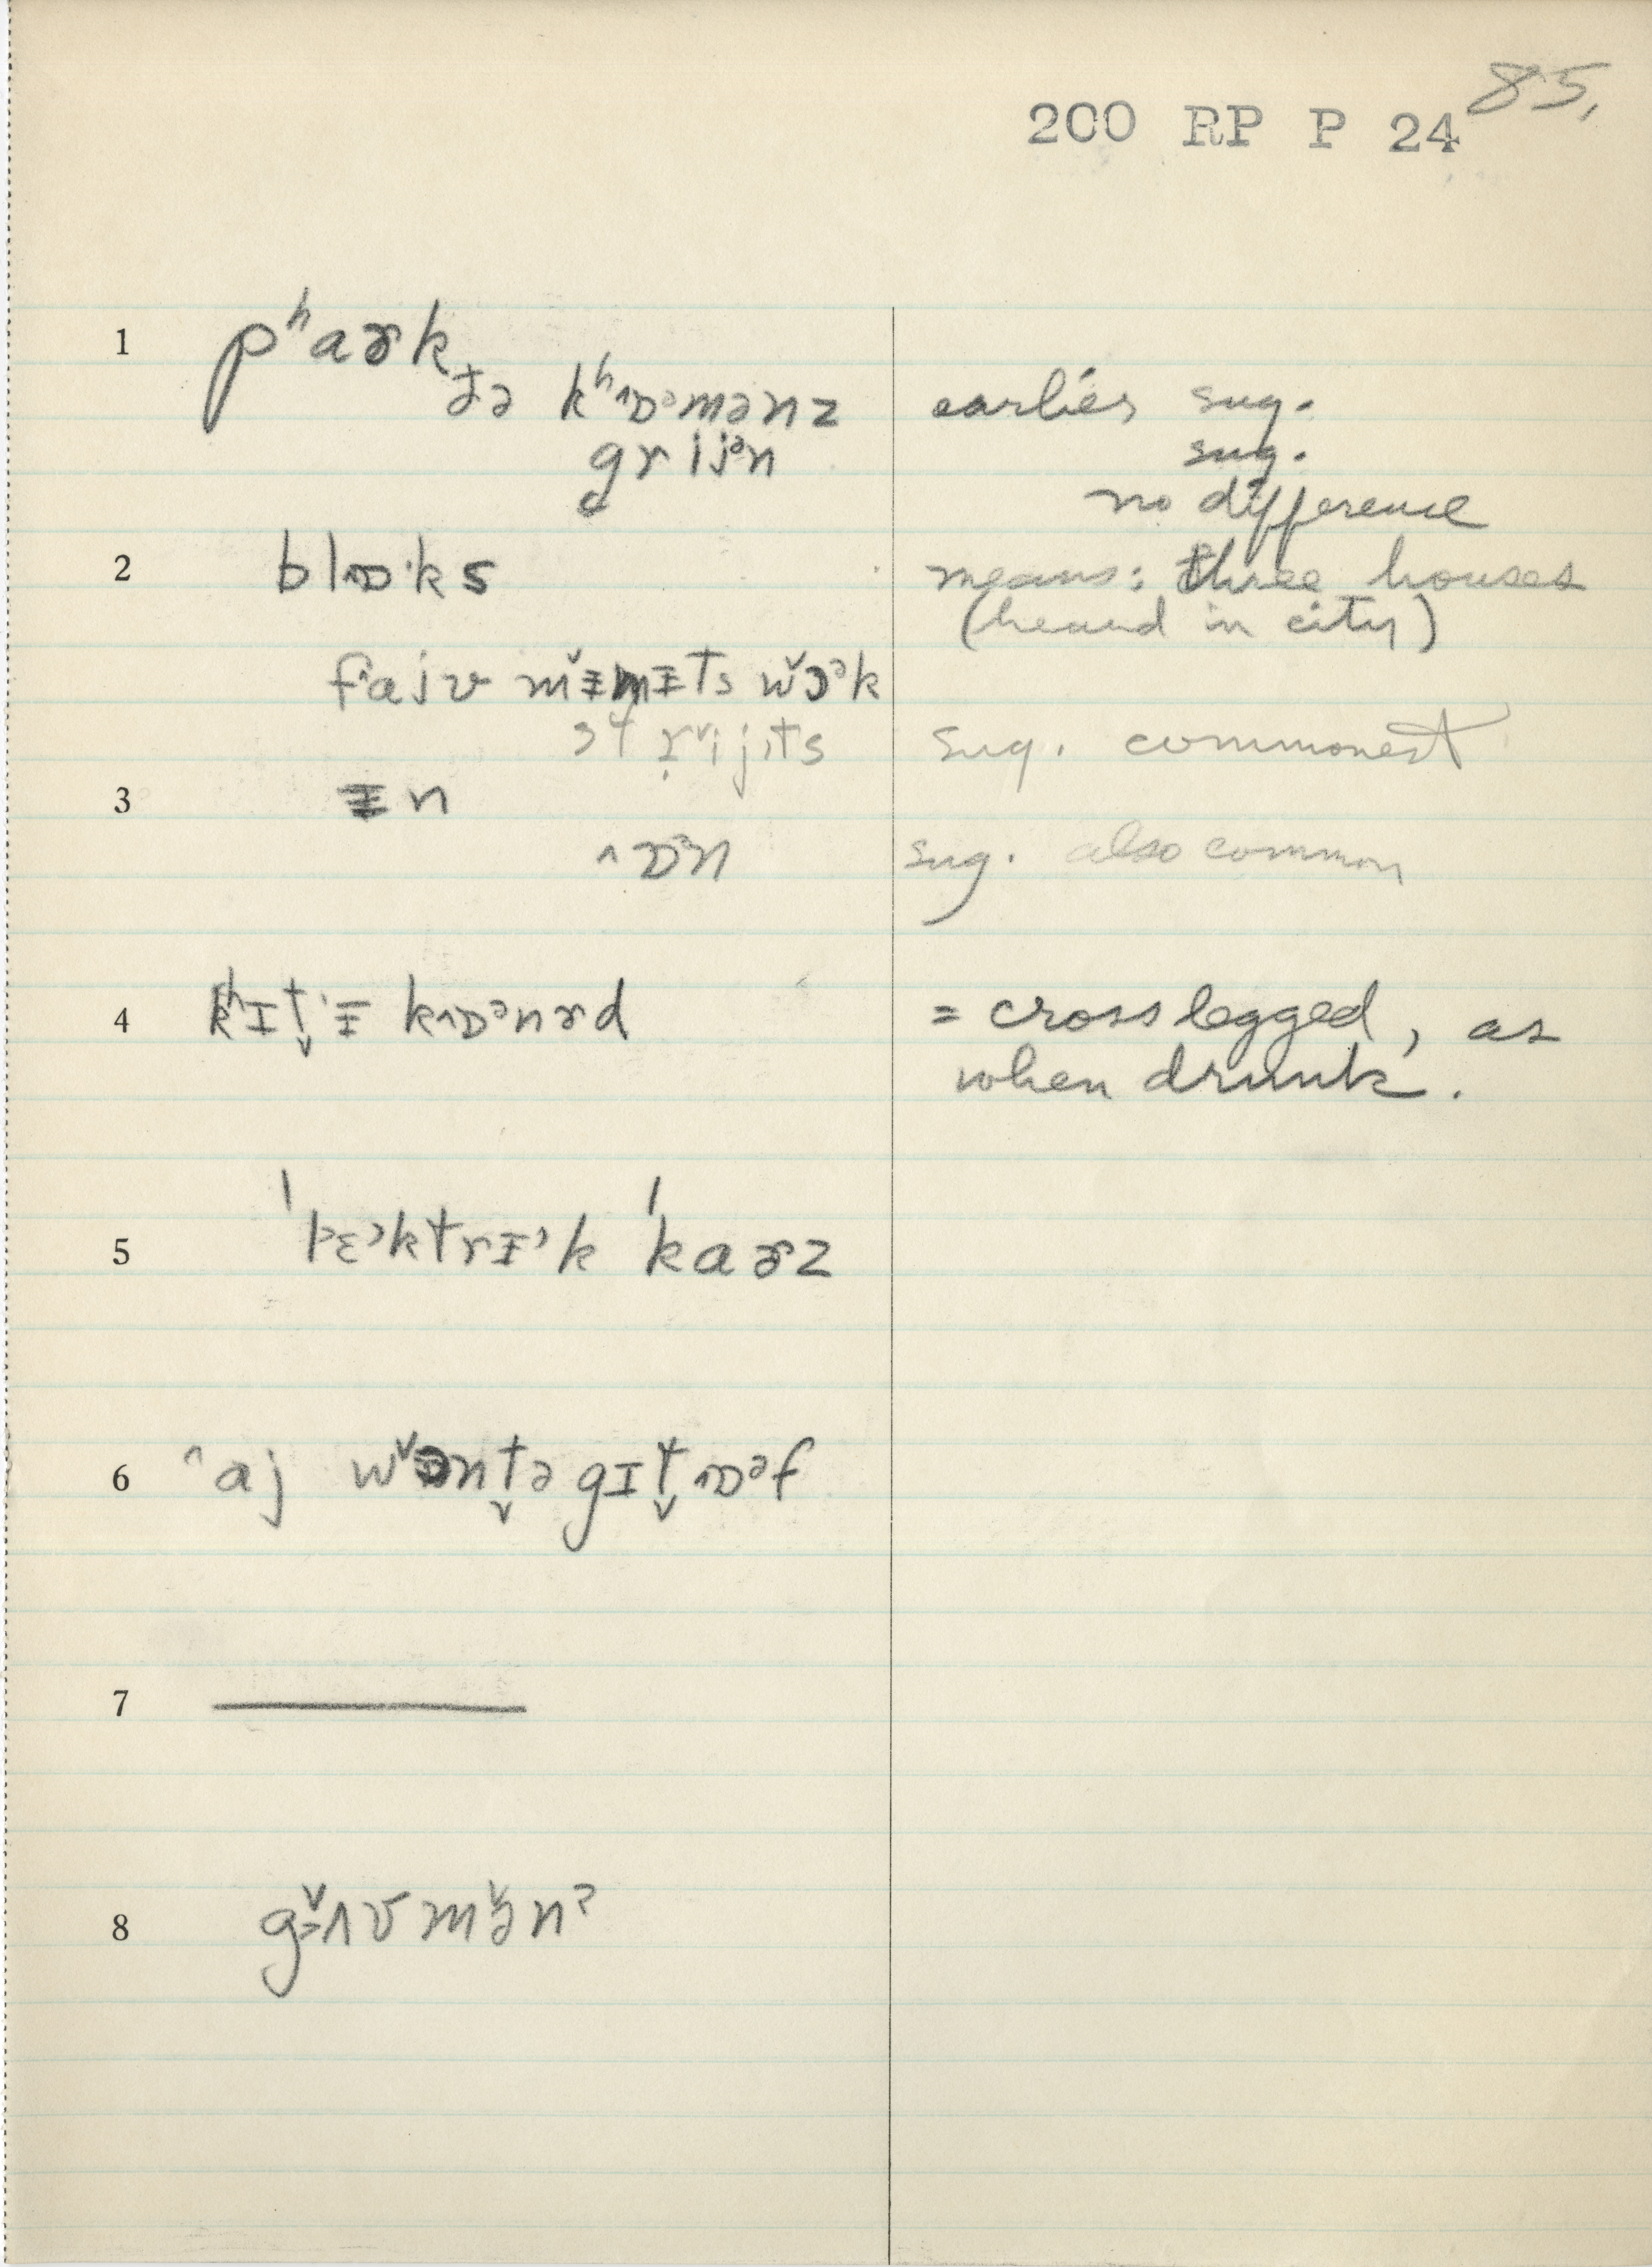 85.
200 RP P 24
1 pʰaɚk
ðə kʰ^ɒᵊmənz earlier sug.
grijᵊn sug.
no difference
2 bl^ɒ·ks means: three houses
(heard in city)
f^ajv mɨ̌mɨts wɔ̌ᵊk
strijɨts sug. commonest
3 ɨn
^ɒᵊn sug. also common
4 kʰɪt̬ɨ k^ɒᵊnɚd = cross legged, as
when drunk.
5 ˈlɛ˃ktrɨ˃k ˈkaɚz
6 ^aj wɔ̌nt̬ə gɪt̬ ^ɒᵊf
7 ———
8 gʌ̌vmə̌nˀ